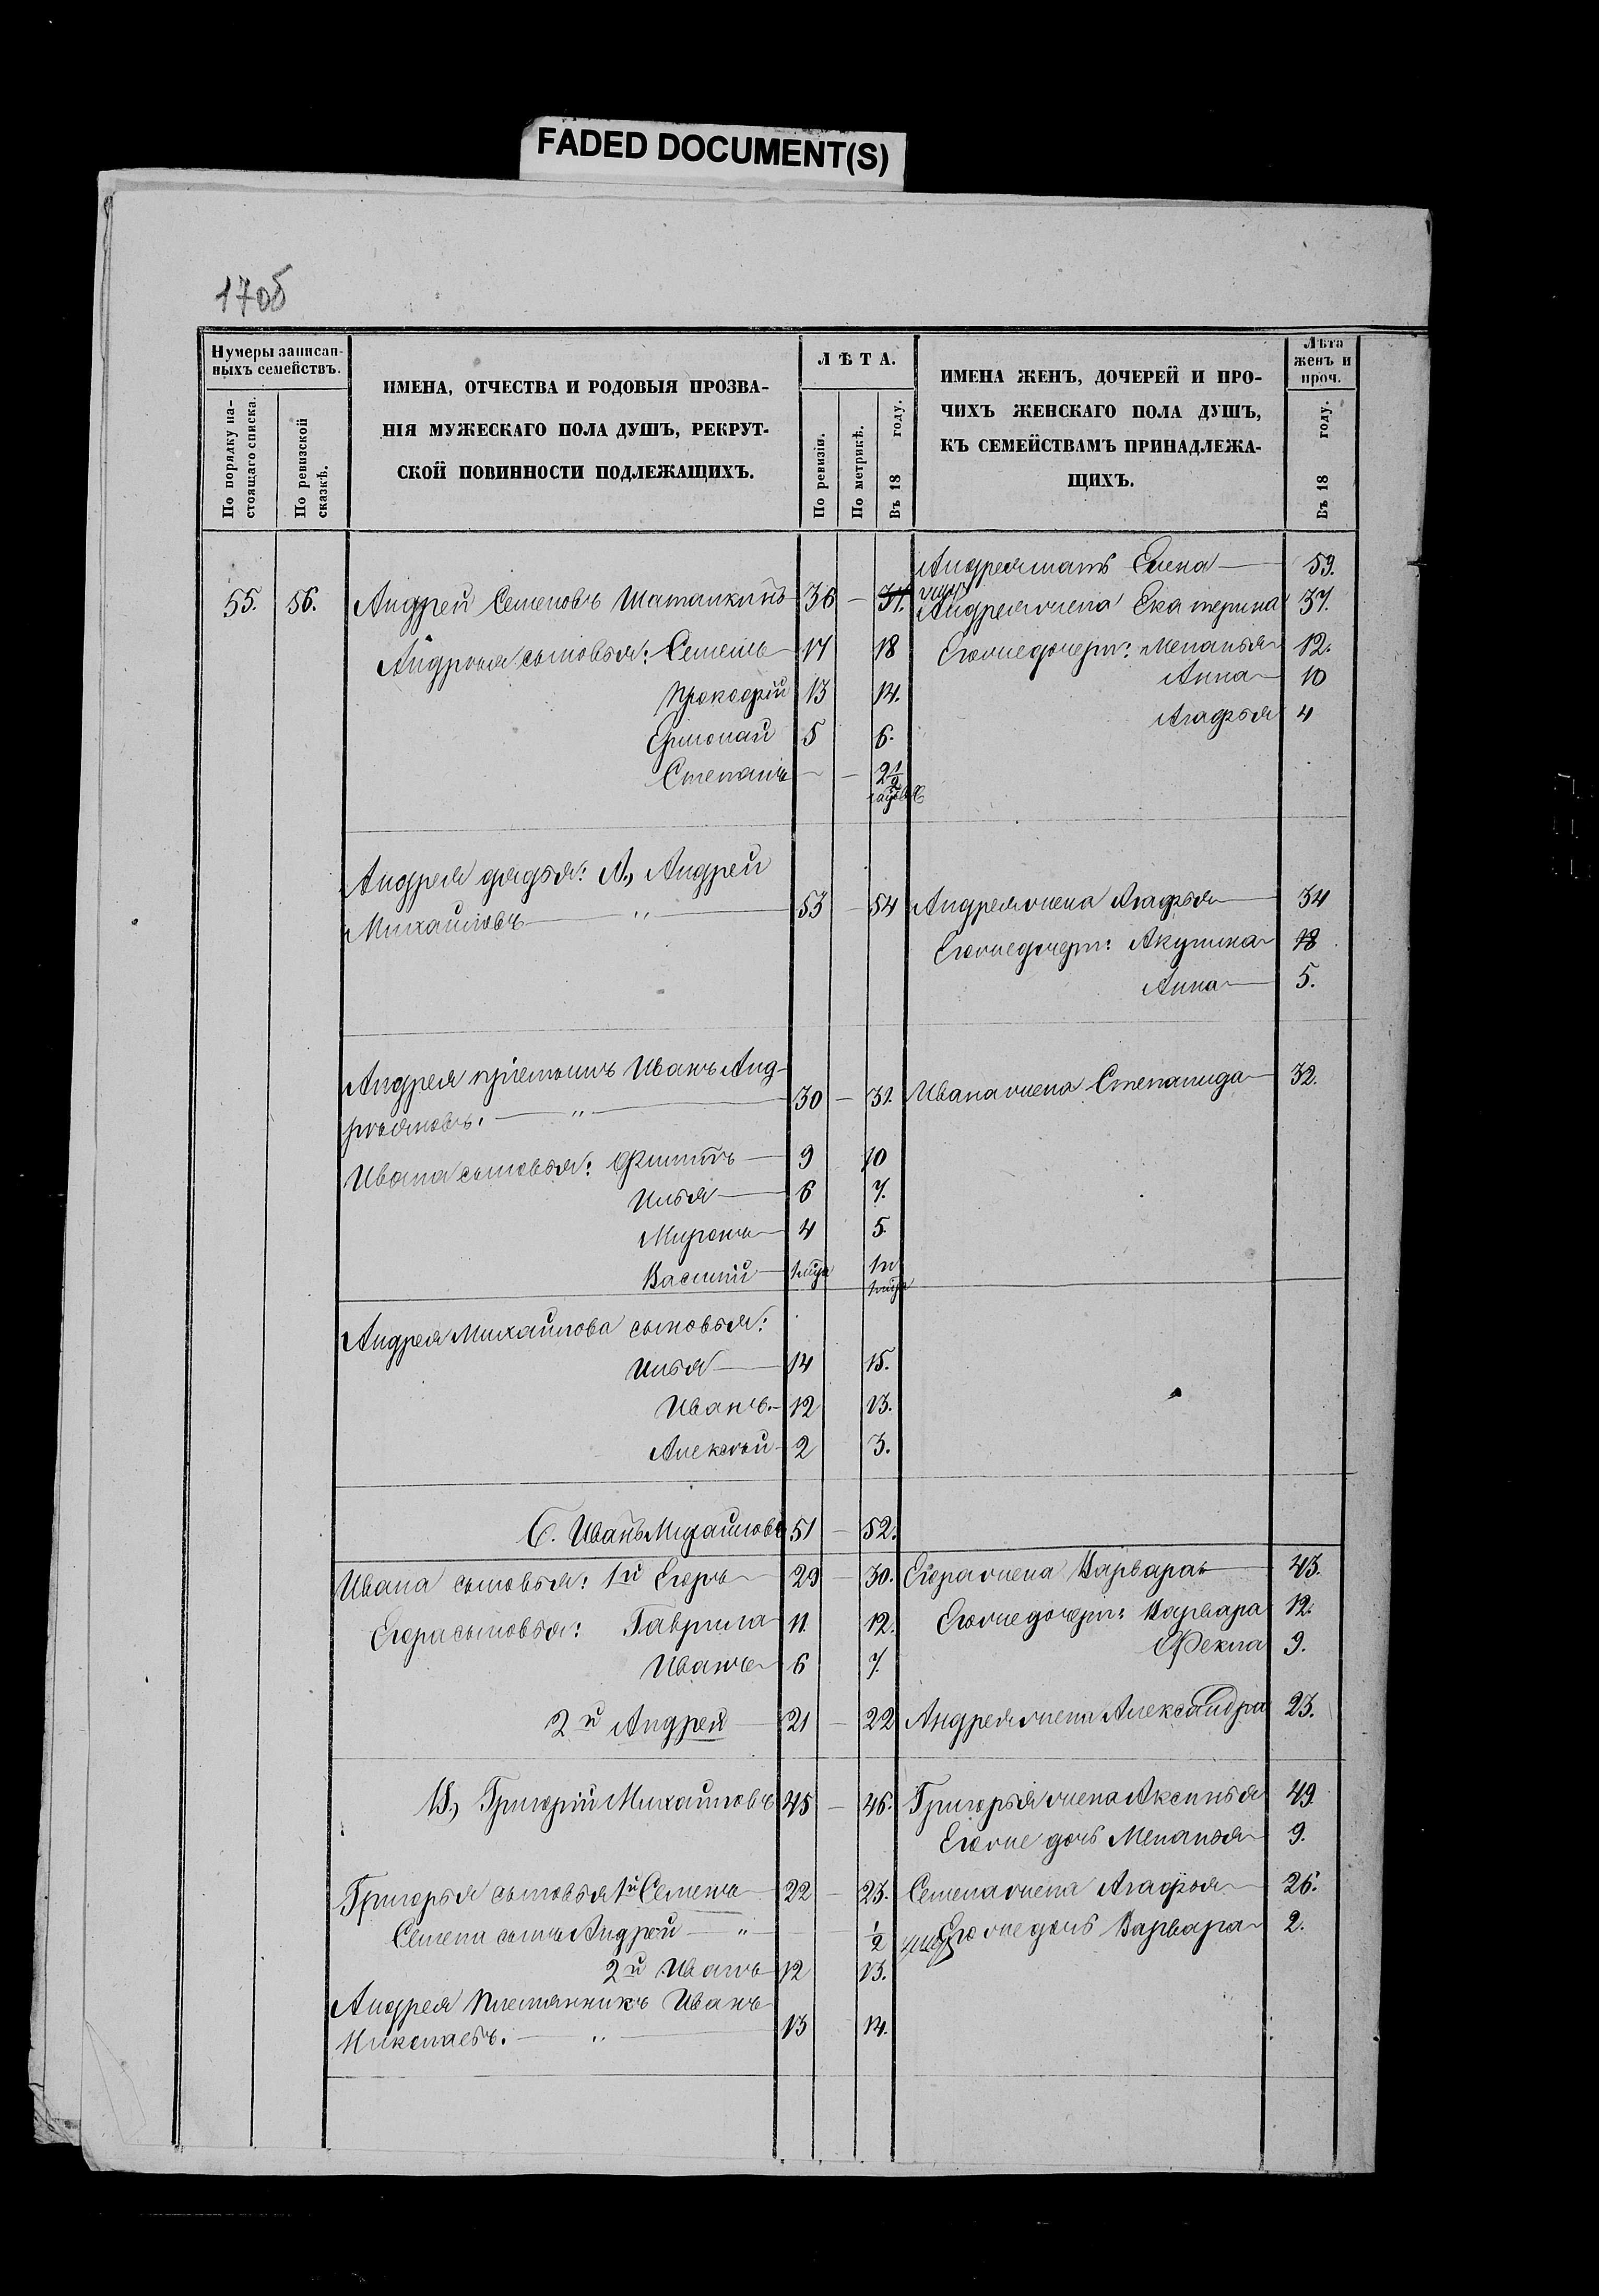 FADED DOCUMENT(S)
170б
Нумеры записан-
ныхъ семействъ.
По порядку на-
стоящаго списка.
По ревизской
сказкѣ.
ИМЕНА, ОТЧЕСТВА И РОДОВЫЯ ПРОЗВА-
НІЯ МУЖЕСКАГО ПОЛА ДУШЪ, РЕКРУТ-
СКОЙ ПОВИННОСТИ ПОДЛЕЖАЩИХЪ.
ЛѢТА.
По ревизіи.
По метрикѣ.
Въ 18 году.
ИМЕНА ЖЕНЪ, ДОЧЕРЕЙ И ПРО-
ЧИХЪ ЖЕНСКАГО ПОЛА ДУШЪ,
КЪ СЕМЕЙСТВАМЪ ПРИНАДЛЕЖА-
ЩИХЪ.
Лѣта
женъ и
проч.
Въ 18 году.
Андрея мать Елена 59.
55. 56. Андрей Семеновъ Шаталкинъ 36 — 37. Андрея жена Екатерина 37.
Андрея сыновья: Семенъ 17 18 Егоже дочери: Меланья 12.
Прокофій 13 14. Анна 10
Ермолай 5 6. Агафья 4
Степанъ — — 2 1/2
Андрея дядья: А, Андрей
Михайловъ " 53 — 54 Андрея жена Агафья 34
Егоже дочери: Акулина 18
Анна 5.
Андрея пріемышъ Иванъ Анд-
реяновъ. " 30 — 31. Ивана жена Степанида 32.
Ивана сыновья: Филипъ 9 10
Илья 6 7.
Миронъ 4 5.
Василій
Андрея Михайлова сыновья:
Илья 14 15.
Иванъ. 12 13.
Алексѣй 2 3.
Б. Иванъ Михайловъ 51 — 52.
Ивана сыновья: 1й Егоръ 29 — 30. Егора жена Варвара 43.
Егора сыновья: Гаврила 11. 12. Егоже дочери: Варвара 12.
Иванъ 6 7. Фекла 9.
2й Андрей 21 — 22 Андрея жена Александра 23.
В, Григорій Михайловъ 45 — 46. Григорья жена Аксинья 49
Егоже дочь Меланья 9.
Григорья сыновья 1й Семенъ 22 — 23. Семена жена Агафья 26.
Семена сынъ Андрей " 1/2 Егоже дочь Варвара 2.
2й Иванъ 12 13.
Андрея племянникъ Иванъ
Николаевъ. " 13 14.